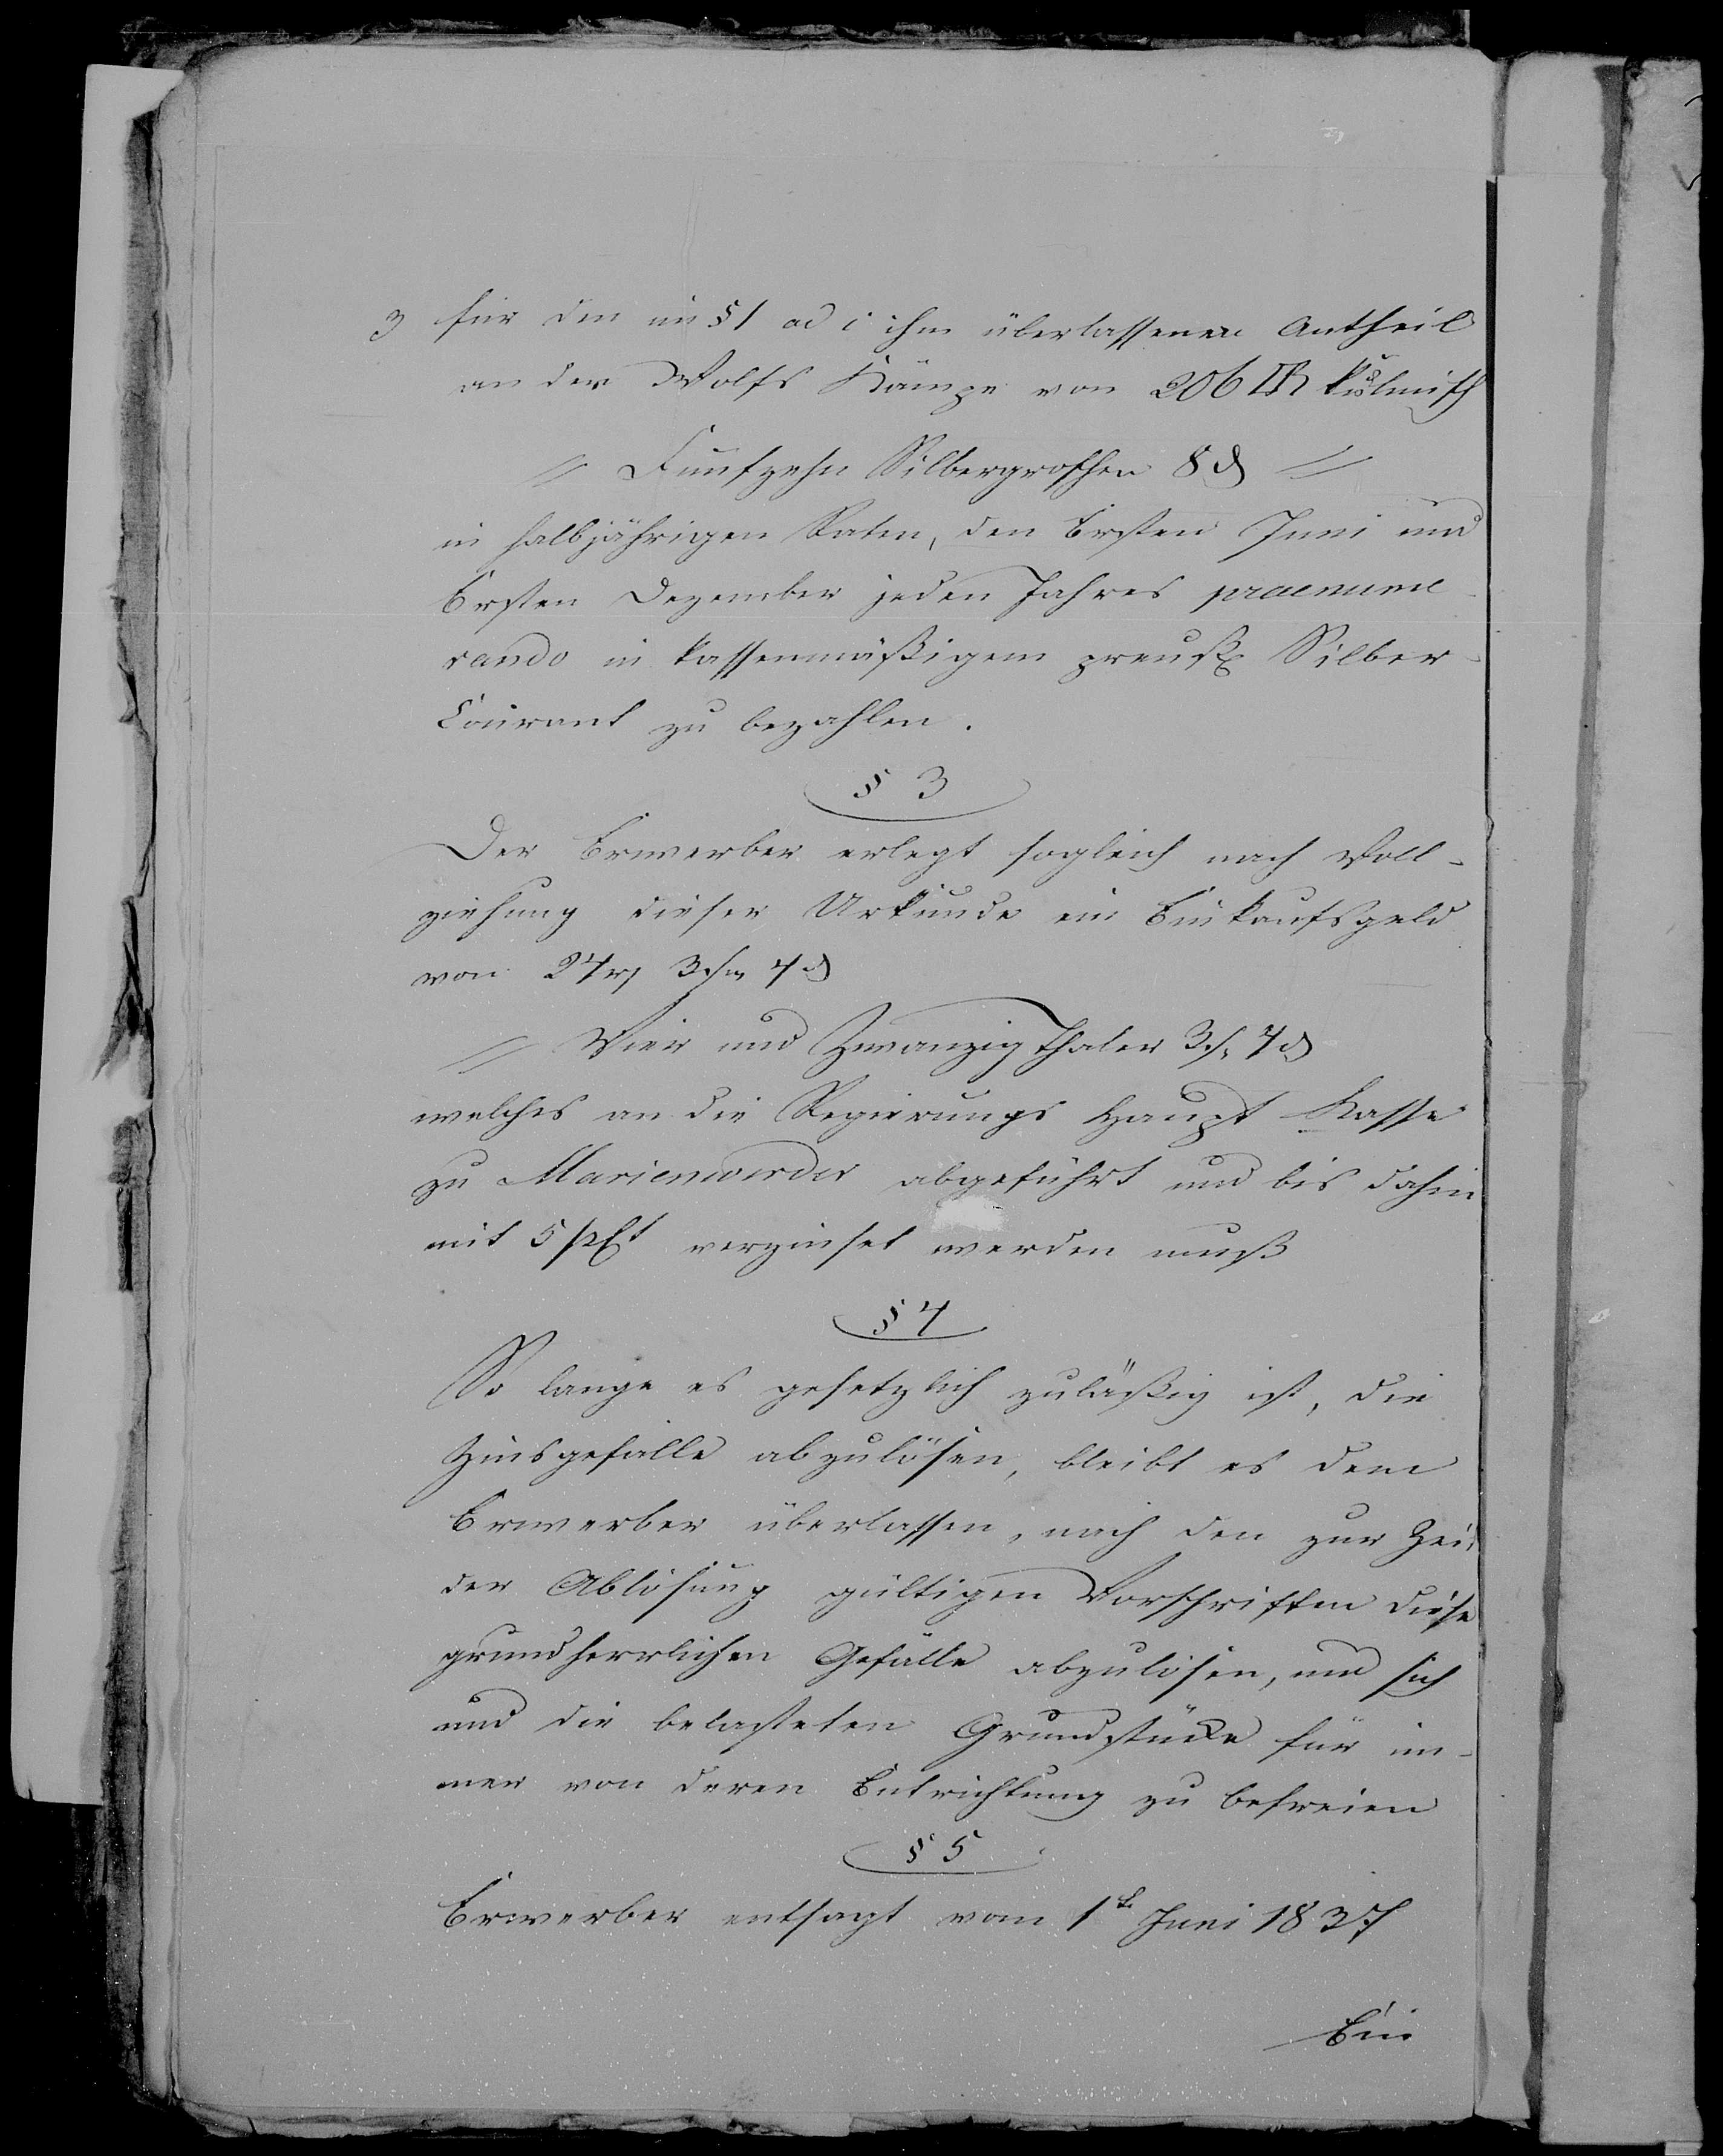 3 für den im § 1 ad c ihm überlassenen Antheil
an der Wolfs Kämpe von 206 □R kulmisch
// Funfzehn Silbergroschen 8 ₰ //
in halbjährigen Raten, den Ersten Juni und
Ersten Dezember jeden Jahres praenume-
rando in kassenmäßigem preuß. Silber-
Courant zu bezahlen.
§ 3
Der Erwerber erlegt sogleich nach Voll-
ziehung dieser Urkunde ein Einkaufsgeld
von 24 rt 3 sg 4 ₰
// Vier und Zwanzig Thaler 3 sg 4 ₰
welches an die Regierungs Haupt Kasse
zu Marienwerder abgeführt und bis dahin
mit 5 pCt verzinset werden muß
§ 4
So lange es gesetzlich zuläßig ist, die
Zinsgefälle abzulösen, bleibt es dem
Erwerber überlassen, nach den zur Zeit
der Ablösung gültigen Vorschriften diese
grundherrlichen Gefälle abzulösen, und sich
und die belasteten Grundstücke für im-
mer von deren Entrichtung zu befreien
§ 5
Erwerber entsagt vom 1t Juni 1837
Ein